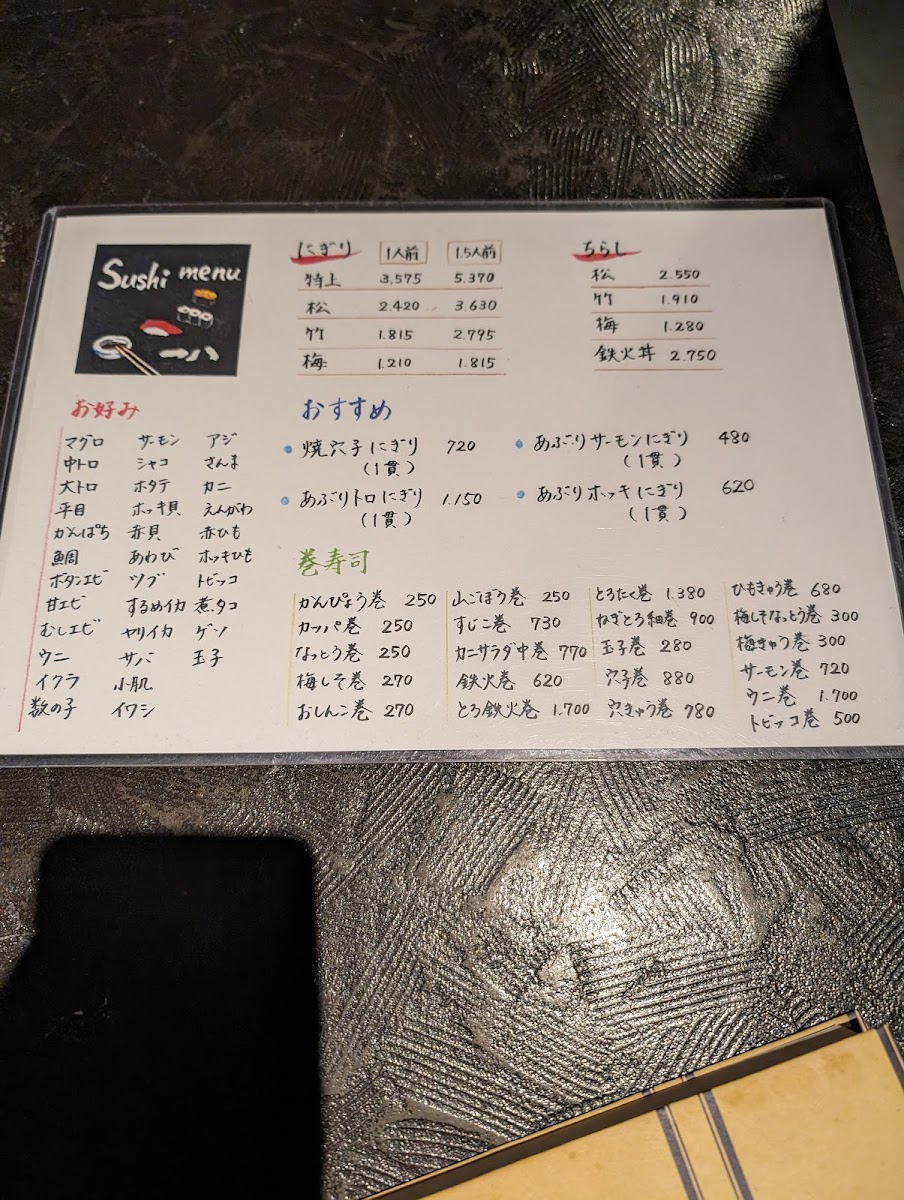 Sushi menu
一八
にぎり 1人前 1.5人前
特上 3,575 5.370
松 2.420 3.630
竹 1.815 2.795
梅 1.210 1.815
ちらし
松 2.550
竹 1.910
梅 1.280
鉄火丼 2.750
お好み
マグロ サーモン アジ
中トロ シャコ さんま
大トロ ホタテ カニ
平目 ホッキ貝 えんがわ
かんぱち 赤貝 赤ひも
鯛 あわび ホッキひも
ボタンエビ ツブ トビッコ
甘エビ するめイカ 煮タコ
むしエビ ヤリイカ ゲソ
ウニ サバ 玉子
イクラ 小肌
数の子 イワシ
おすすめ
焼穴子にぎり 720
(1貫)
あぶりトロにぎり 1.150
(1貫)
あぶりサーモンにぎり 480
(1貫)
あぶりホッキにぎり 620
(1貫)
巻寿司
かんぴょう巻 250
カッパ巻 250
なっとう巻 250
梅しそ巻 270
おしんこ巻 270
山ごぼう巻 250
すじこ巻 730
カニサラダ中巻 770
鉄火巻 620
とろ鉄火巻 1.700
とろたく巻 1.380
ねぎとろ細巻 900
玉子巻 280
穴子巻 880
穴きゅう巻 780
ひもきゅう巻 680
梅しそなっとう巻 300
梅きゅう巻 300
サーモン巻 720
ウニ巻 1.700
トビッコ巻 500